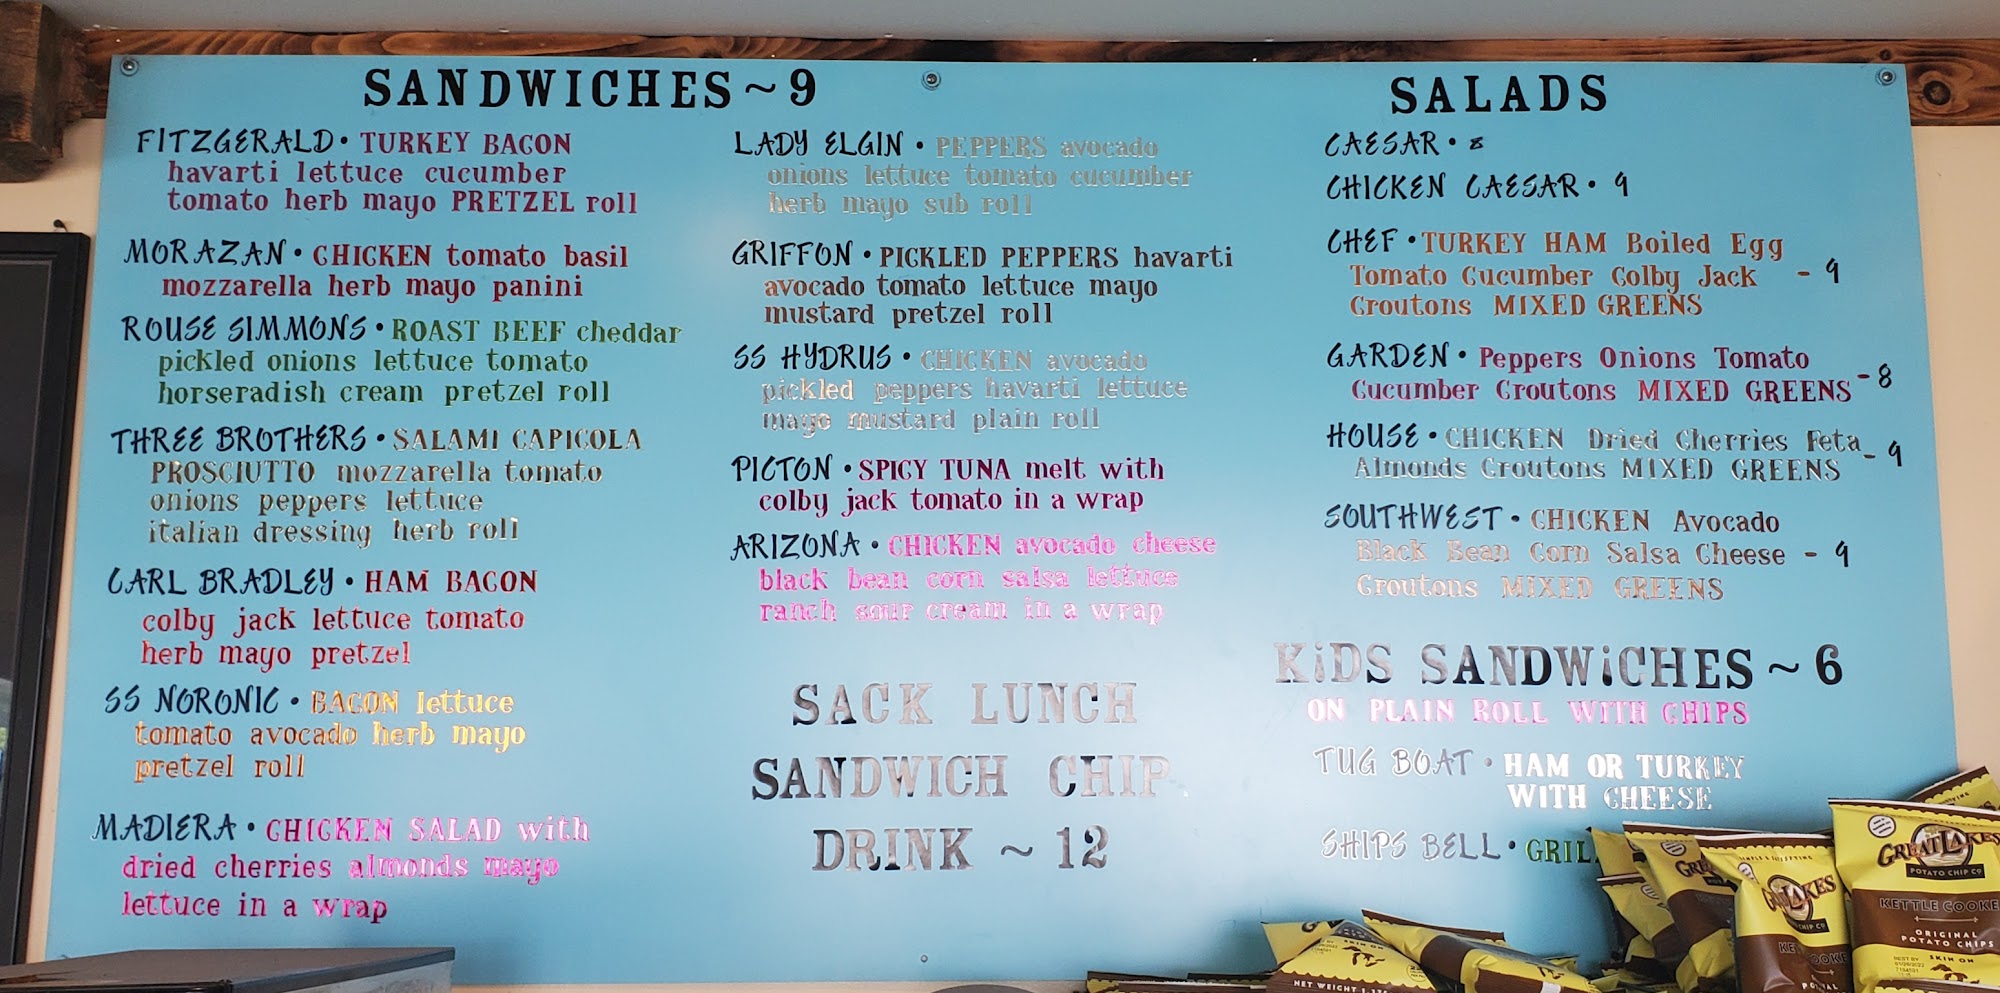 SANDWICHES ~ 9
FITZGERALD • TURKEY BACON
havarti lettuce cucumber
tomato herb mayo PRETZEL roll
MORAZAN • CHICKEN tomato basil
mozzarella herb mayo panini
ROUSE SIMMONS • ROAST BEEF cheddar
pickled onions lettuce tomato
horseradish cream pretzel roll
THREE BROTHERS • SALAMI CAPICOLA
PROSCIUTTO mozzarella tomato
onions peppers lettuce
italian dressing herb roll
CARL BRADLEY • HAM BACON
colby jack lettuce tomato
herb mayo pretzel
SS NORONIC • BACON lettuce
tomato avocado herb mayo
pretzel roll
MADIERA • CHICKEN SALAD with
dried cherries almonds mayo
lettuce in a wrap
LADY ELGIN • PEPPERS avocado
onions lettuce tomato cucumber
herb mayo sub roll
GRIFFON • PICKLED PEPPERS havarti
avocado tomato lettuce mayo
mustard pretzel roll
SS HYDRUS • CHICKEN avocado
pickled peppers havarti lettuce
mayo mustard plain roll
PICTON • SPICY TUNA melt with
colby jack tomato in a wrap
ARIZONA • CHICKEN avocado cheese
black bean corn salsa lettuce
ranch sour cream in a wrap
SACK LUNCH
SANDWICH CHIP
DRINK ~ 12
SALADS
CAESAR • 8
CHICKEN CAESAR • 9
CHEF • TURKEY HAM Boiled Egg
Tomato Cucumber Colby Jack - 9
Croutons MIXED GREENS
GARDEN • Peppers Onions Tomato
Cucumber Croutons MIXED GREENS - 8
HOUSE • CHICKEN Dried Cherries Feta
Almonds Croutons MIXED GREENS - 9
SOUTHWEST • CHICKEN Avocado
Black Bean Corn Salsa Cheese - 9
Croutons MIXED GREENS
KiDS SANDWiCHES ~ 6
ON PLAIN ROLL WITH CHIPS
TUG BOAT • HAM OR TURKEY
WITH CHEESE
SHIPS BELL • GRIL
GREAT LAKES
POTATO CHIP CO
KETTLE COOKE
ORIGINAL
POTATO CHIPS
SKIN ON
NET WEIGHT
SKIN ON